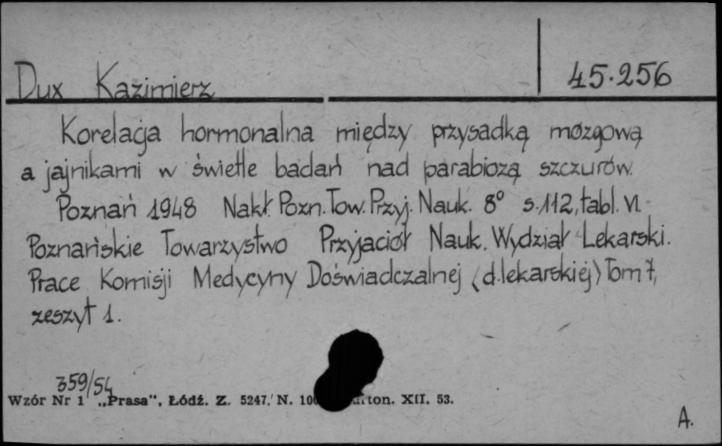 Dux Kazimierz
45.256
Korelacja hormonalna między przysadką mózgową
a jajnikami w świetle badań nad parabiozą szczurów.
Poznań 1948 Nakł. Pozn. Tow. Przyj. Nauk. 8° s. 112, tabl. VI.
Poznańskie Towarzystwo Przyjaciół Nauk. Wydział Lekarski.
Prace Komisji Medycyny Doświadczalnej (d. lekarskiej) Tom 7,
zeszyt 1.
359/54
Wzór Nr 1 „Prasa", Łódź. Z. 5247. N. XII. 53.
A.